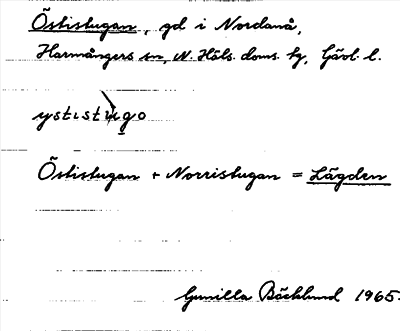 Östistugan, gd i Nordanå,
Harmångers sn, N. Häls. doms. hg, Gävl. l.
ystıstùgo
Östistugan + Norristugan = Lägden
Gunilla Bäcklund 1965.